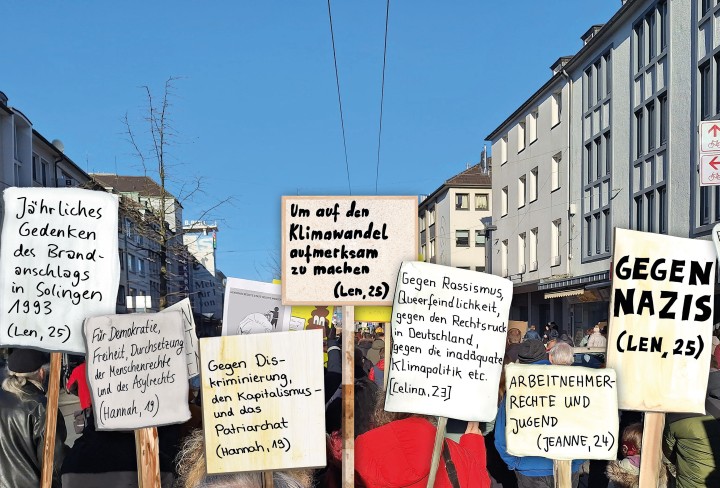 Jährliches
Gedenken
des Brand-
anschlags
in Solingen
1993
(Len, 25)
Für Demokratie,
Freiheit, Durchsetzung
der Menschenrechte
und des Asylrechts
(Hannah, 19)
Gegen Dis-
kriminierung,
den Kapitalismus
und das
Patriarchat
(Hannah, 19)
Um auf den
Klimawandel
aufmerksam
zu machen
(Len, 25)
Gegen Rassismus,
Queerfeindlichkeit,
gegen den Rechtsruck
in Deutschland,
gegen die inadäquate
Klimapolitik etc.
[Celina, 23]
ARBEITNEHMER-
RECHTE UND
JUGEND
(JEANNE, 24)
GEGEN
NAZIS
(LEN, 25)